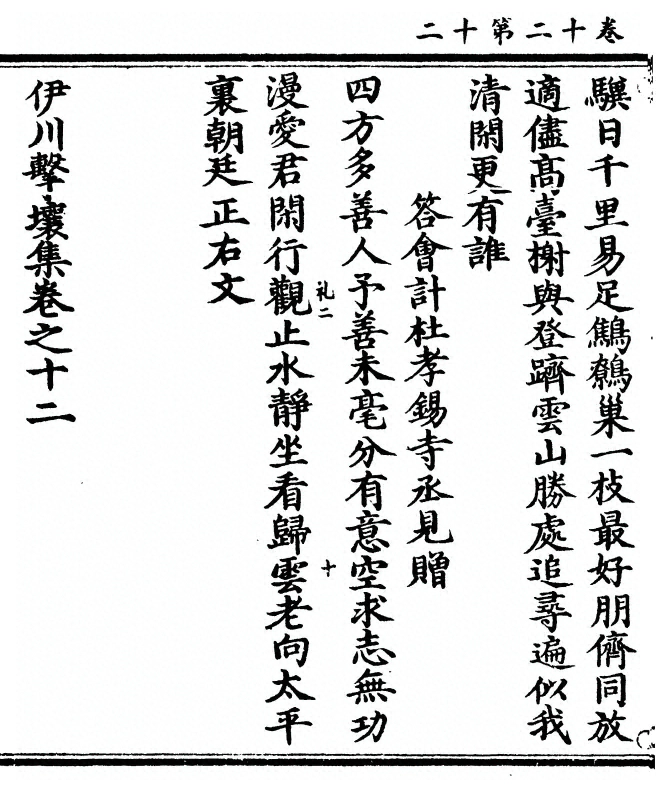 卷十二第十二
驥日千里易足鷦鷯巢一枝最好朋儕同放
適儘髙臺榭與登躋雲山勝處追尋遍似我
清閑更有誰
答會計杜孝錫寺丞見贈
四方多善人予善未毫分有意空求志無功
漫愛君閑行觀止水靜坐看歸雲老向太平
裏朝廷正右文
礼二
十
伊川擊壤集卷之十二